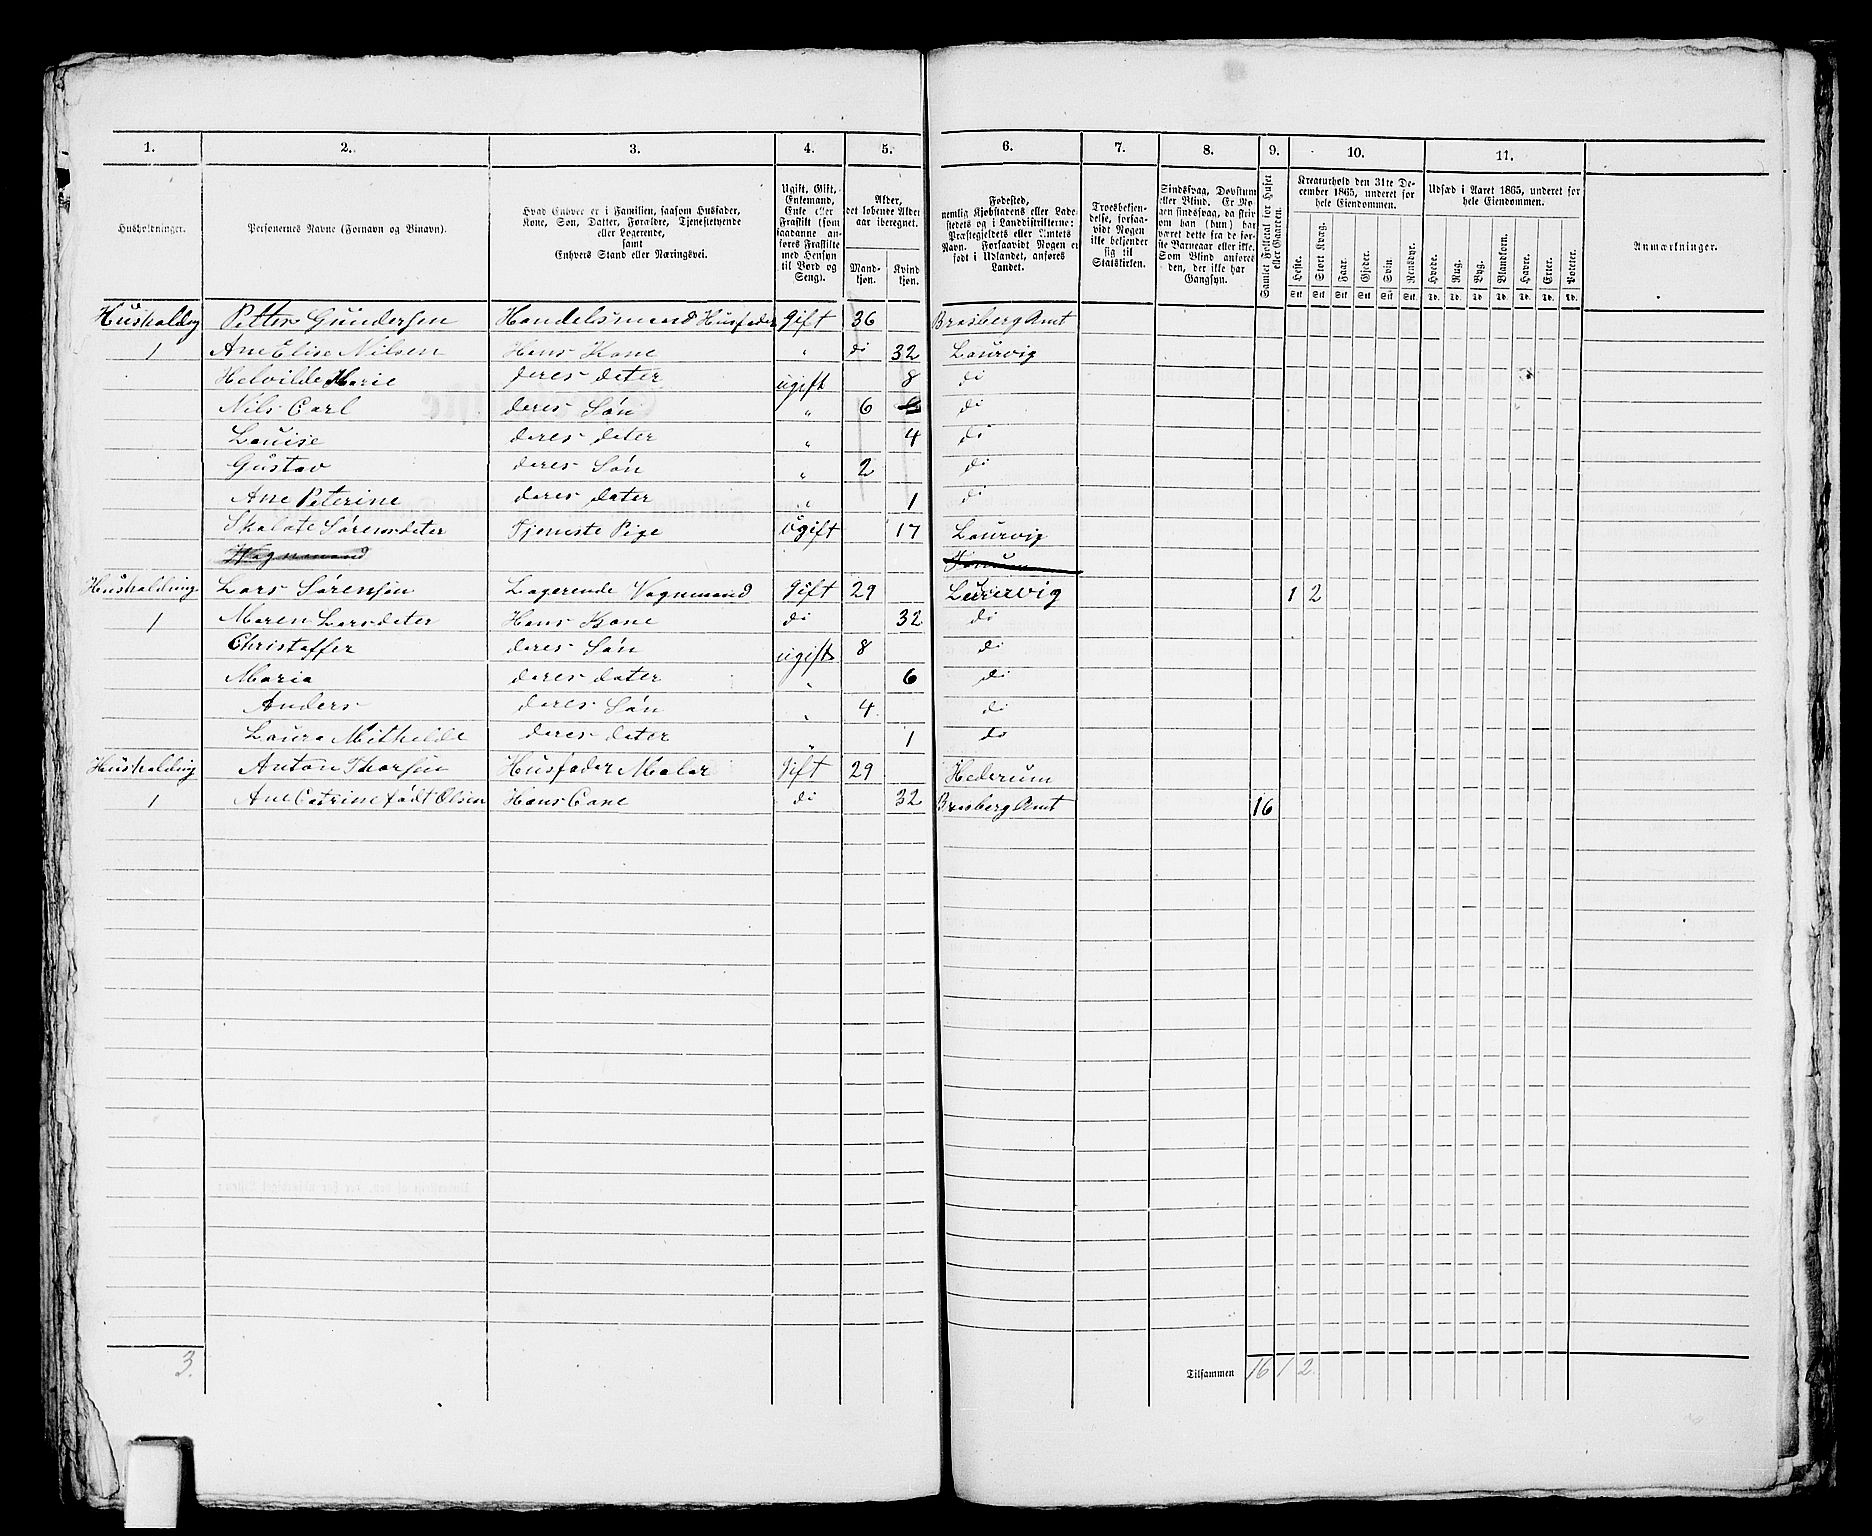 1. 2. 3. 4. 5. 6. 7. 8. 9. 10. 11.
Husholdninger.
Personernes Navne (Fornavn og Tilnavn).
Hvad Enhver er i Familien, saasom Husfader,
Kone, Søn, Datter, Forældre, Tjenestetyende
eller Logerende,
samt
Enhvers Stand eller Næringsvei.
Ugift, Gift,
Enkemand,
Enke eller
Fraskilt (som
saadanne an-
føres Fraskilte
med Hensyn
til Bord og
Seng).
Alder,
det løbende Alders-
aar iberegnet.
Mand-
kjøn.
Kvind-
kjøn.
Fødested,
nemlig Kjøbstadens eller Lade-
stedets og i Landdistrikterne:
Præstegjeldets eller Amtets
Navn. Forsaavidt Nogen er
født i Udlandet, anføres
Landet.
Troesbekjen-
delse, forsaa-
vidt Nogen
ikke bekjender
sig til
Statskirken.
Sindssvag, Døvstum
eller Blind. Er No-
gen sindssvag, da skri-
ves om han (hun) har
været dette fra de før-
ste Barneaar eller ikke.
Som Blind anføres
den, der ikke har
Gangsyn.
Samlet Folketal for Huset
eller Gaarden.
Kreaturhold den 31te De-
cember 1865, underet for
hele Eiendommen.
Heste. Stort Kvæg. Faar. Gjeder. Svin. Rensdyr.
Stk Stk Stk Stk Stk Stk
Udsæd i Aaret 1865, underet for
hele Eiendommen.
Hvede. Rug. Byg. Blandkorn. Havre. Erter. Poteter.
Td. Td. Td. Td. Td. Td. Td.
Anmærkninger.
Husholdng Petter Gundersen Handelsmand Husfader Gift 36 Brasberg Amt
1 Ane Elise Nilsen Hans Kone " di 32 Laurvig
Helvilde Marie deres dater ugift 8 di
Nils Carl deres Søn " 6 6 di
Louise deres dater " 4 di
Gustav deres Søn " 2 di
Ane Peterine deres dater " 1 di
Skalate Sørensdater Tjeneste Pige Ugift 17 Laurvig
Vognmand
Husholdning Lars Sørensøn Logerende Vognmand Gift 29 Laurvig 1 2
1 Maren Larsdater Hans Kone di 32 di
Christoffer deres Søn ugift 8 di
Maria deres dater " 6 di
Anders deres Søn " 4 di
Laura Mithilde deres dater " 1 di
Husholdning Anton Thorsen Husfader Maler Gift 29 Hederum
1 Ane Catrine født Olsen Hans Cone di 32 Brasberg Amt 16
3.
Tilsammen 16 1 2